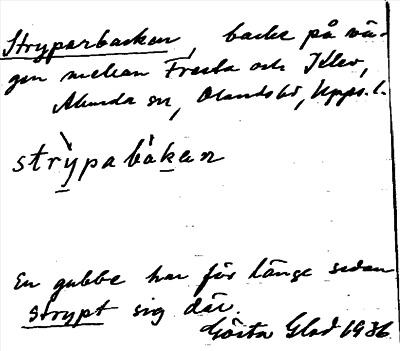 Stryparbacken, backe på vä-
gen mellan Fresta och Klev,
Alunda sn, Olands hd, Upps. l.
strỳpabàkan
En gubbe har för länge sedan
strypt sig där.
Gösta Glad 1936